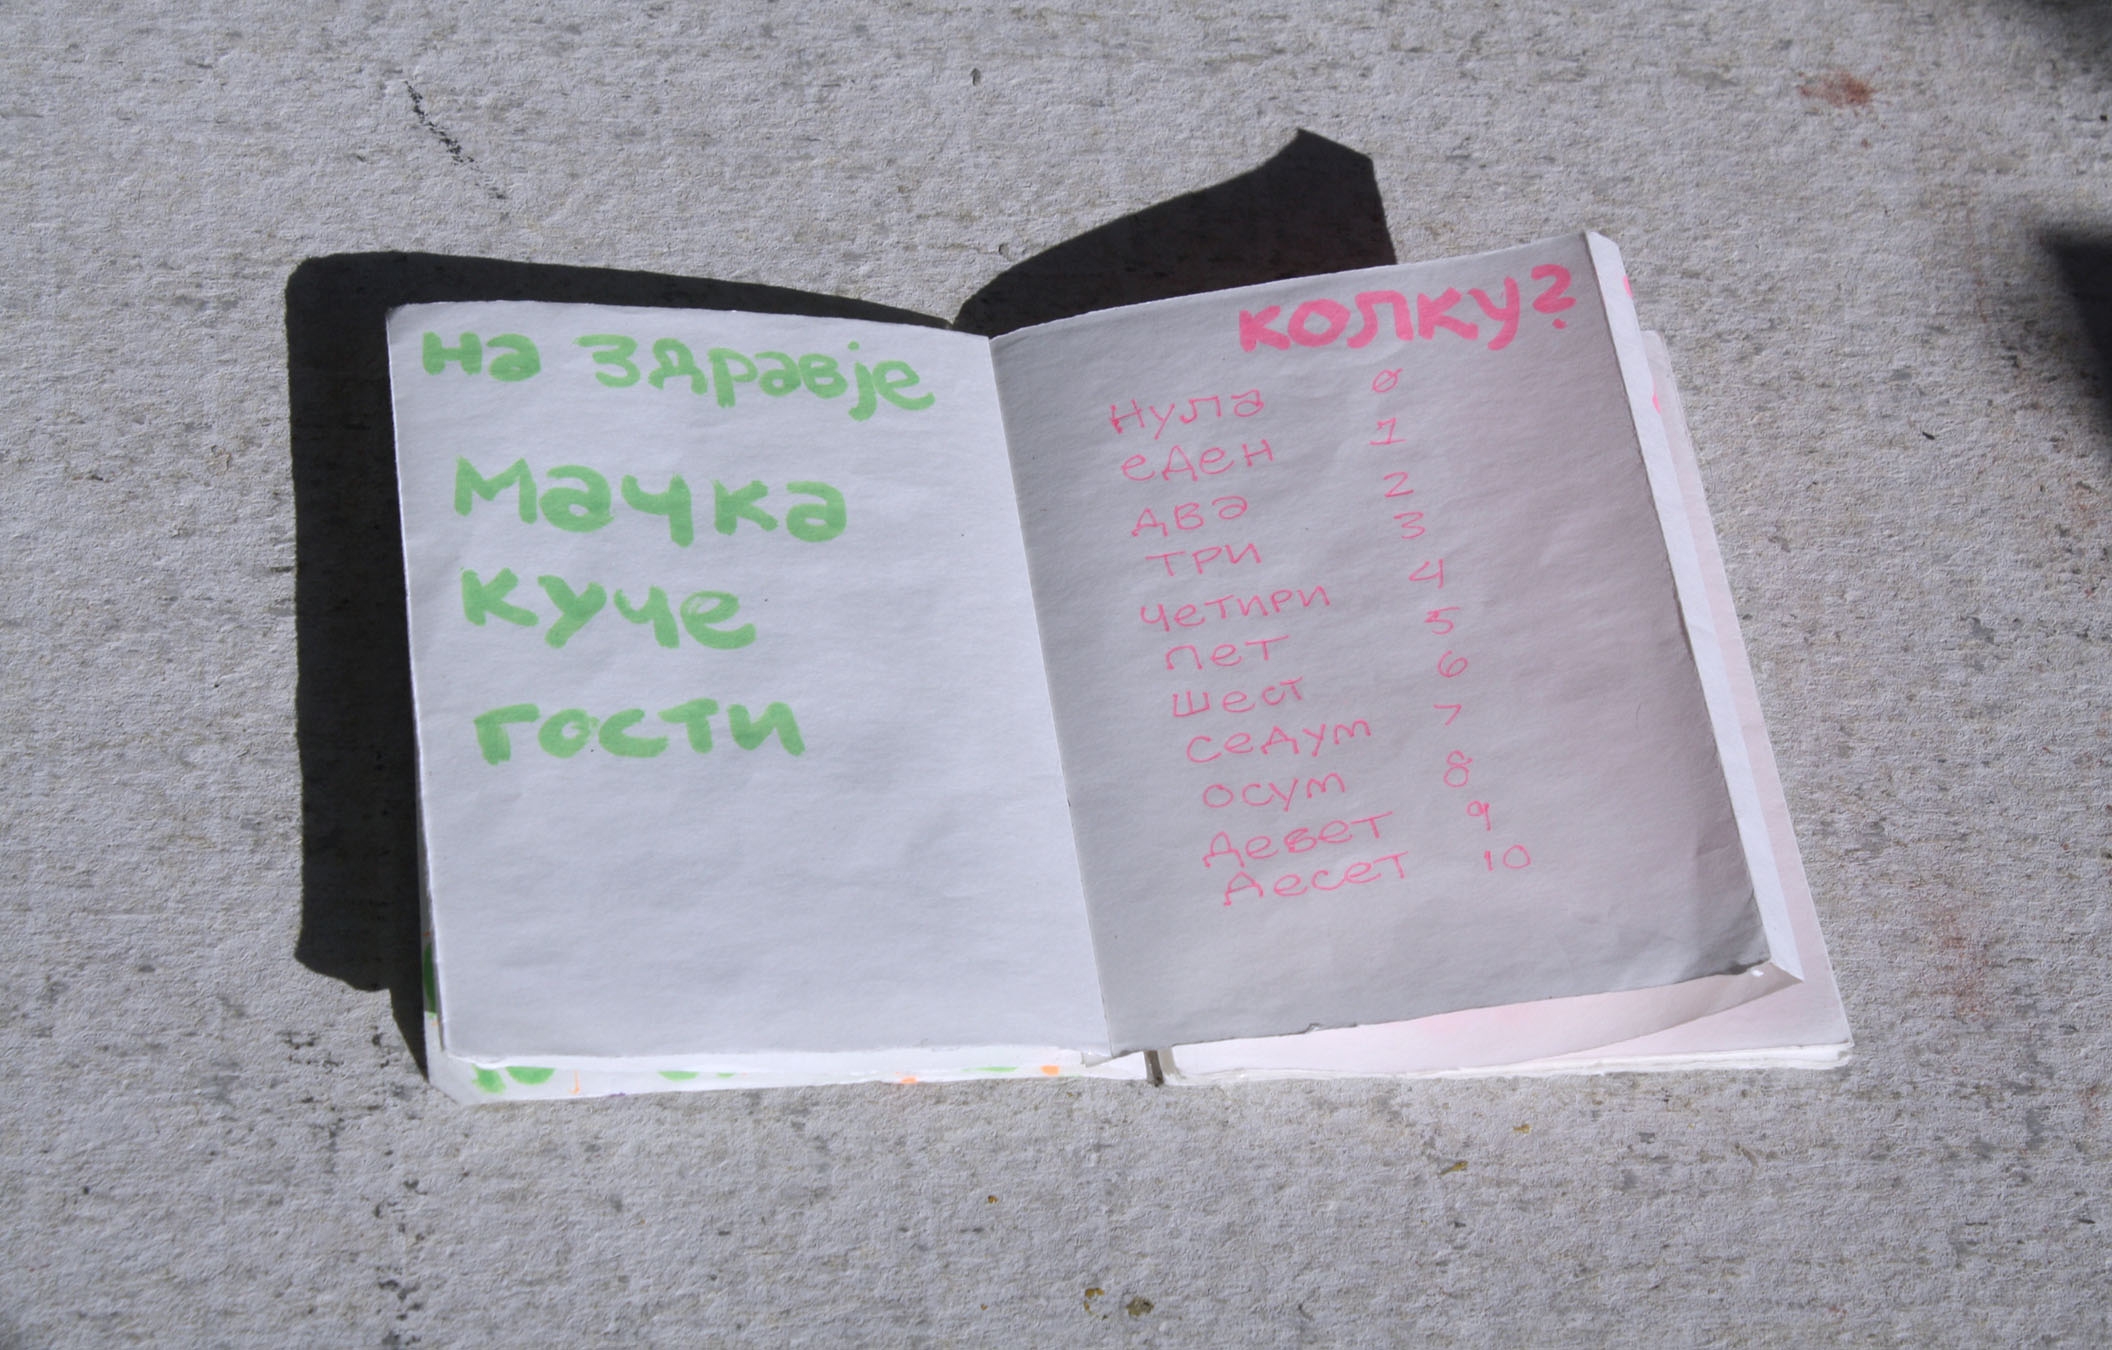 на здравје
мачка
куче
гости
колку?
нула 0
еден 1
два 2
три 3
четири 4
пет 5
шест 6
седум 7
осум 8
девет 9
десет 10